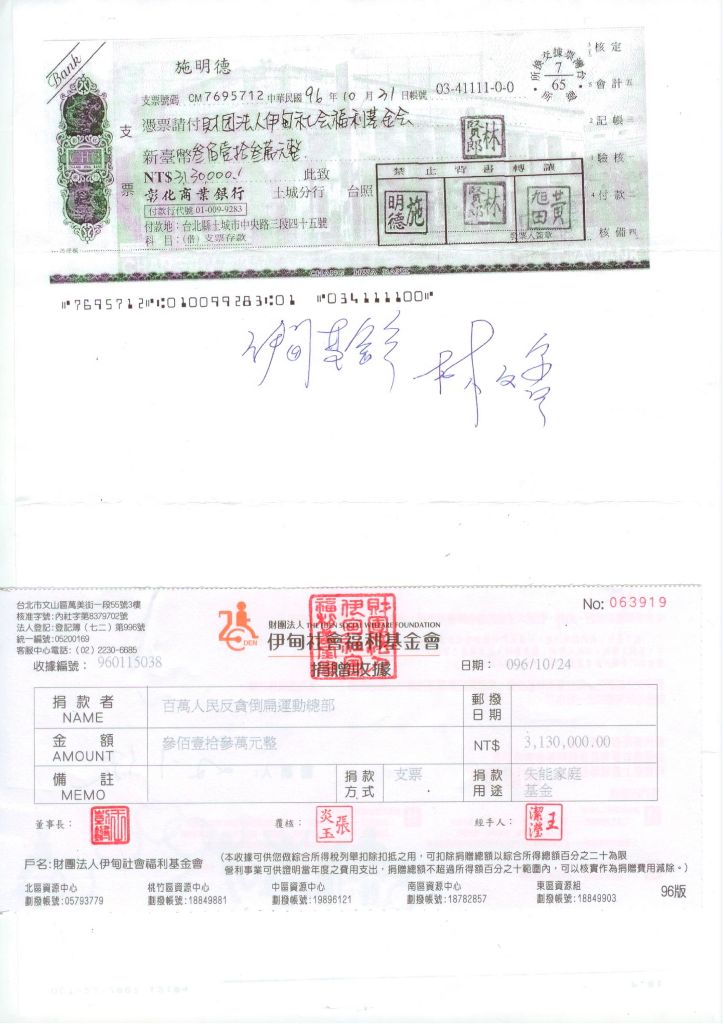 Bank
施明德
支票號碼 CM7695712 中華民國 96 年 10 月 21 日 帳號 03-41111-0-0
憑票請付 財团法人伊甸社会福利基金会
新臺幣 叁佰壹拾叁萬元整
NT$ 3130000.- 此致
彰化商業銀行 土城分行 台照
付款行代號 01-009-9283
付款地：台北縣土城市中央路三段四十五號
科目：(借) 支票存款
支票
7
65
核定
會計 五
記帳 三
驗核 一
付款 二
核備 四
林賢郎
禁止背書轉讓
施明德
林賢郎
黃旭田
發票人簽章
⑈7695712⑈⑆010099283⑆01 ⑈034111100⑈
台北市文山區萬美街一段55號3樓
核准字號:內社字第8379702號
法人登記:登記簿(七二)第996號
統一編號:05200169
客服中心電話:(02) 2230-6685
收據編號： 960115038
No: 063919
財團法人 THE EDEN SOCIAL WELFARE FOUNDATION
伊甸社會福利基金會
捐贈收據
日期： 096/10/24
捐款者 NAME 百萬人民反貪倒扁運動總部 郵撥日期
金額 AMOUNT 參佰壹拾參萬元整 NT$ 3,130,000.00
備註 MEMO 捐款方式 支票 捐款用途 失能家庭基金
董事長： 覆核： 張炎玉 經手人： 王潔瀅
戶名:財團法人伊甸社會福利基金會
(本收據可供您做綜合所得稅列舉扣除扣抵之用，可扣除捐贈總額以綜合所得總額百分之二十為限
營利事業可供證明當年度之費用支出，捐贈總額不超過所得百分之十範圍內，可以核實作為捐贈費用減除。)
北區資源中心 桃竹區資源中心 中區資源中心 南區資源中心 東區資源組
劃撥帳號:05793779 劃撥帳號:18849881 劃撥帳號:19896121 劃撥帳號:18782857 劃撥帳號:18849903
96版